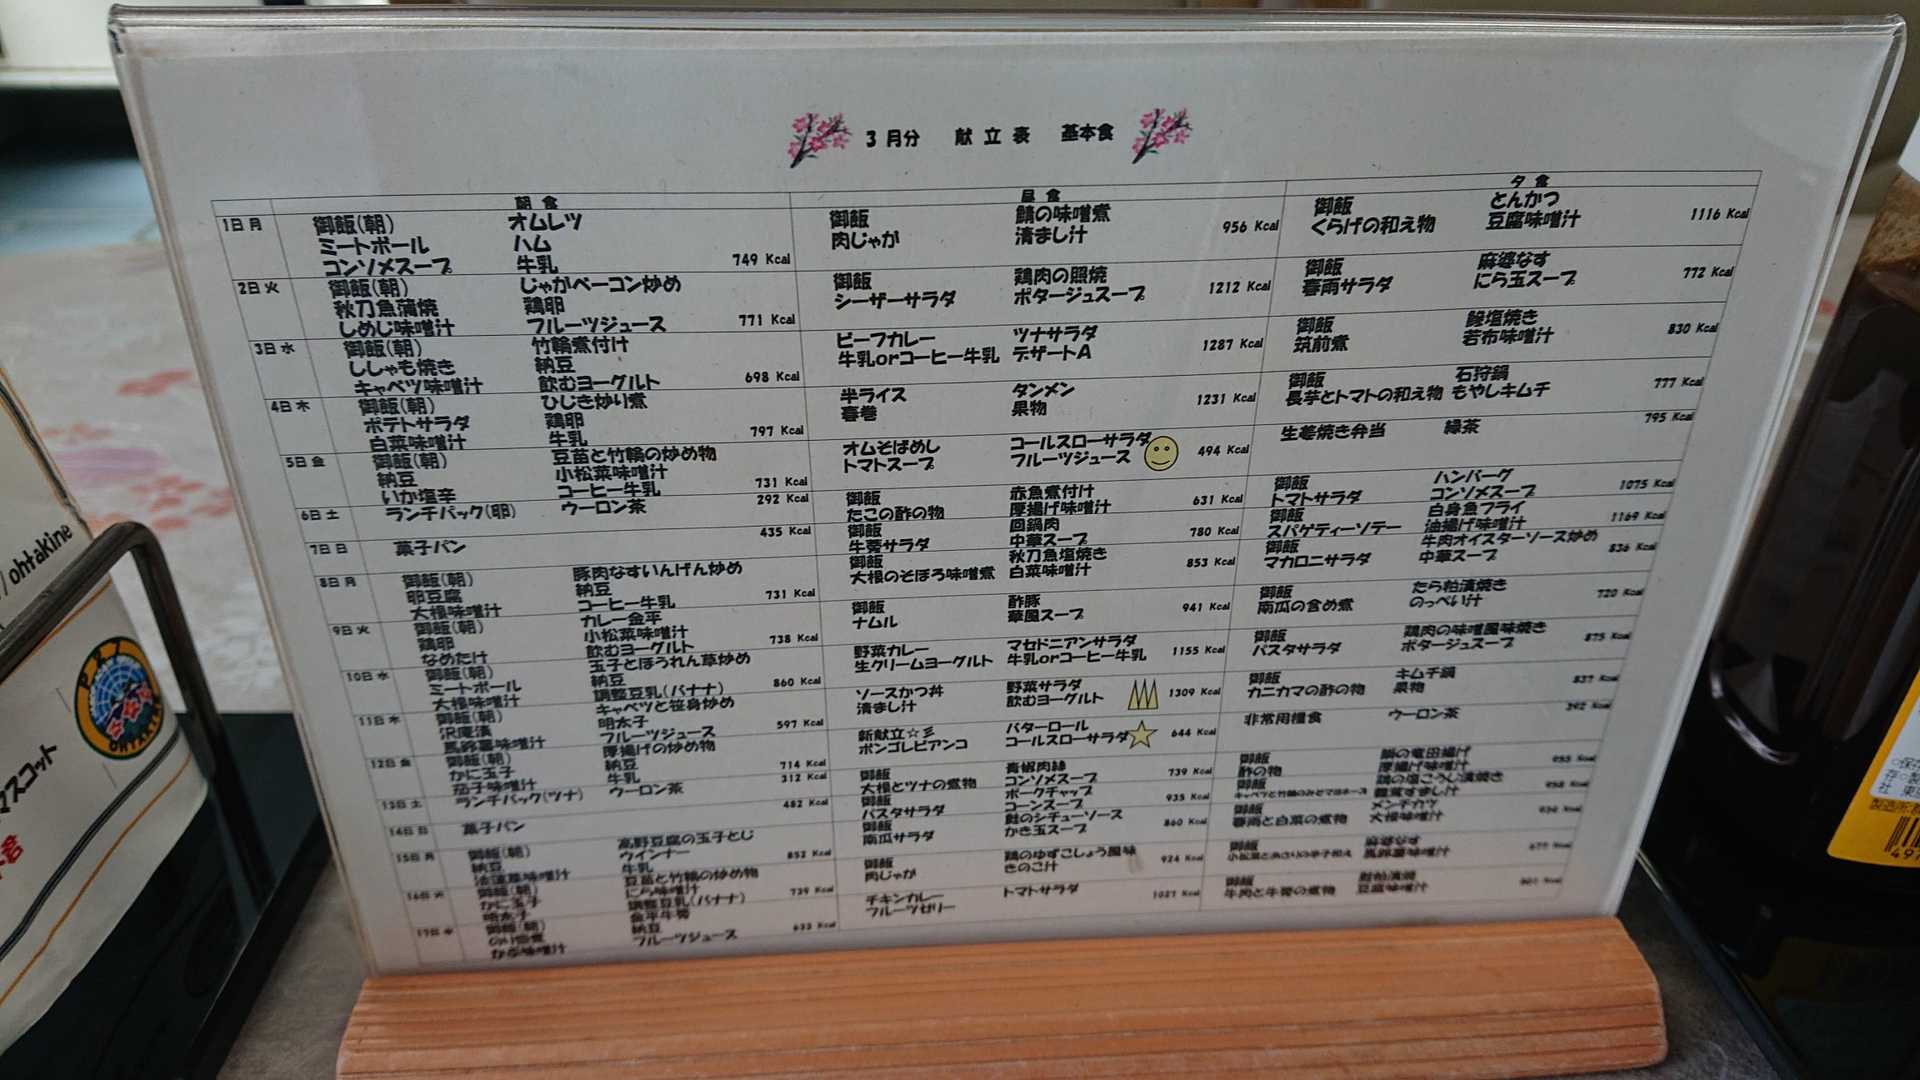 3月分 献立表 基本食
朝食 昼食 夕食
1日月 御飯(朝) オムレツ
ミートボール ハム
コンソメスープ 牛乳 749 Kcal
御飯 鯖の味噌煮
肉じゃが 清まし汁 956 Kcal
御飯 とんかつ
くらげの和え物 豆腐味噌汁 1116 Kcal
2日火 御飯(朝) じゃがベーコン炒め
秋刀魚蒲焼 鶏卵
しめじ味噌汁 フルーツジュース 771 Kcal
御飯 鶏肉の照焼
シーザーサラダ ポタージュスープ 1212 Kcal
御飯 麻婆なす
春雨サラダ にら玉スープ 772 Kcal
3日水 御飯(朝) 竹輪煮付け
ししゃも焼き 納豆
キャベツ味噌汁 飲むヨーグルト 698 Kcal
ビーフカレー ツナサラダ
牛乳orコーヒー牛乳 デザートA 1287 Kcal
御飯 鯵塩焼き
筑前煮 若布味噌汁 830 Kcal
4日木 御飯(朝) ひじき炒り煮
ポテトサラダ 鶏卵
白菜味噌汁 牛乳 797 Kcal
半ライス タンメン
春巻 果物 1231 Kcal
御飯 石狩鍋
長芋とトマトの和え物 もやしキムチ 777 Kcal
5日金 御飯(朝) 豆苗と竹輪の炒め物
納豆 小松菜味噌汁
いか塩辛 コーヒー牛乳 731 Kcal
オムそばめし コールスローサラダ
トマトスープ フルーツジュース 494 Kcal
生姜焼き弁当 緑茶 795 Kcal
6日土 ランチパック(卵) ウーロン茶 292 Kcal
御飯 赤魚煮付け
たこの酢の物 厚揚げ味噌汁 631 Kcal
御飯 ハンバーグ
トマトサラダ コンソメスープ 1075 Kcal
7日日 菓子パン 435 Kcal
御飯 回鍋肉
牛蒡サラダ 中華スープ 780 Kcal
御飯 白身魚フライ
スパゲティーソテー 油揚げ味噌汁 1169 Kcal
8日月 御飯(朝) 豚肉なすいんげん炒め
卵豆腐 納豆
大根味噌汁 コーヒー牛乳 731 Kcal
御飯 秋刀魚塩焼き
大根のそぼろ味噌煮 白菜味噌汁 853 Kcal
御飯 牛肉オイスターソース炒め
マカロニサラダ 中華スープ 836 Kcal
9日火 御飯(朝) カレー金平
鶏卵 小松菜味噌汁
なめたけ 飲むヨーグルト 738 Kcal
御飯 酢豚
ナムル 華風スープ 941 Kcal
御飯 たら粕漬焼き
南瓜の含め煮 のっぺい汁 720 Kcal
10日水 御飯(朝) 玉子とほうれん草炒め
ミートボール 納豆
大根味噌汁 調整豆乳(バナナ) 860 Kcal
野菜カレー マセドニアンサラダ
生クリームヨーグルト 牛乳orコーヒー牛乳 1155 Kcal
御飯 鶏肉の味噌風味焼き
パスタサラダ ポタージュスープ 875 Kcal
11日木 御飯(朝) キャベツと笹身炒め
沢庵漬 明太子
馬鈴薯味噌汁 フルーツジュース 597 Kcal
ソースかつ丼 野菜サラダ
清まし汁 飲むヨーグルト 1309 Kcal
御飯 キムチ鍋
カニカマの酢の物 果物 837 Kcal
12日金 御飯(朝) 厚揚げの炒め物
かに玉子 納豆
茄子味噌汁 牛乳 714 Kcal
新献立☆彡 バターロール
ボンゴレビアンコ コールスローサラダ 644 Kcal
非常用糧食 ウーロン茶 292 Kcal
13日土 ランチパック(ツナ) ウーロン茶 312 Kcal
御飯 青椒肉絲
大根とツナの煮物 コンソメスープ 739 Kcal
御飯
酢の物 厚揚げ味噌汁
14日日 菓子パン 482 Kcal
御飯 ポークチャップ
パスタサラダ コーンスープ 935 Kcal
御飯
15日月 御飯(朝) 高野豆腐の玉子とじ
納豆 ウインナー
牛乳 852 Kcal
御飯 鮭のシチューソース
南瓜サラダ かき玉スープ 860 Kcal
御飯 メンチカツ
春雨と白菜の煮物 大根味噌汁
16日火 御飯(朝) 豆苗と竹輪の炒め物
かに玉子 にら味噌汁
明太子 調整豆乳(バナナ) 739 Kcal
御飯 鶏のゆずこしょう風味
肉じゃが きのこ汁 924 Kcal
御飯 麻婆なす
馬鈴薯味噌汁
17日水 御飯(朝) 金平牛蒡
のり佃煮 納豆
かぶ味噌汁 フルーツジュース 633 Kcal
チキンカレー トマトサラダ
フルーツゼリー 1021 Kcal
御飯
牛肉と牛蒡の煮物 豆腐味噌汁
/ohtakine
マスコット
OHTAKI